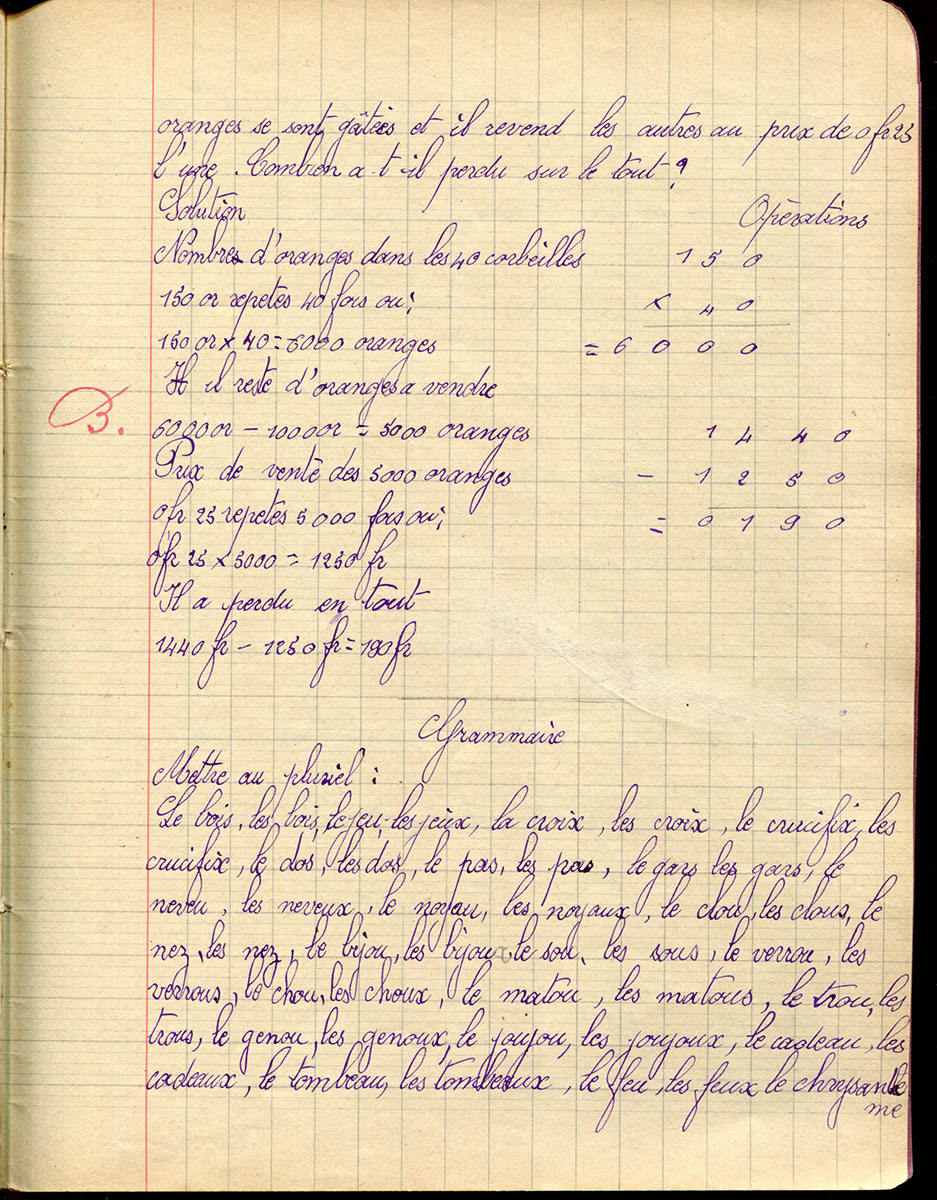 oranges se sont gâtées et il revend les autres au prix de 0fr25
l'une. Combien a-t-il perdu sur le tout ?
Solution
Opérations
Nombres d'oranges dans les 40 corbeilles
1 5 0
150 or repetés 40 fois ou;
× 4 0
150 or × 40 = 6000 oranges
= 6 0 0 0
Il il reste d'oranges a vendre
B.
6000 or - 1000 or = 5000 oranges
1 4 4 0
Prix de vente des 5000 oranges
- 1 2 5 0
0fr 25 repetés 5000 fois ou;
= 0 1 9 0
0fr 25 × 5000 = 1250 fr
Il a perdu en tout
1440 fr - 1250 fr = 190 fr
Grammaire
Mettre au pluriel :
Le bois, les bois, le jeu, les jeux, la croix, les croix, le crucifix, les
crucifix, le dos, les dos, le pas, les pas, le gars les gars, le
neveu, les neveux, le noyau, les noyaux, le clou, les clous, le
nez, les nez, le bijou, les bijoux le sou, les sous, le verrou, les
verrous, le chou, les choux, le matou, les matous, le trou, les
trous, le genou, les genoux, le joujou, les joujoux, le cadeau, les
cadeaux, le tombeau, les tombeaux, le feu, les feux le chrysanthe
me